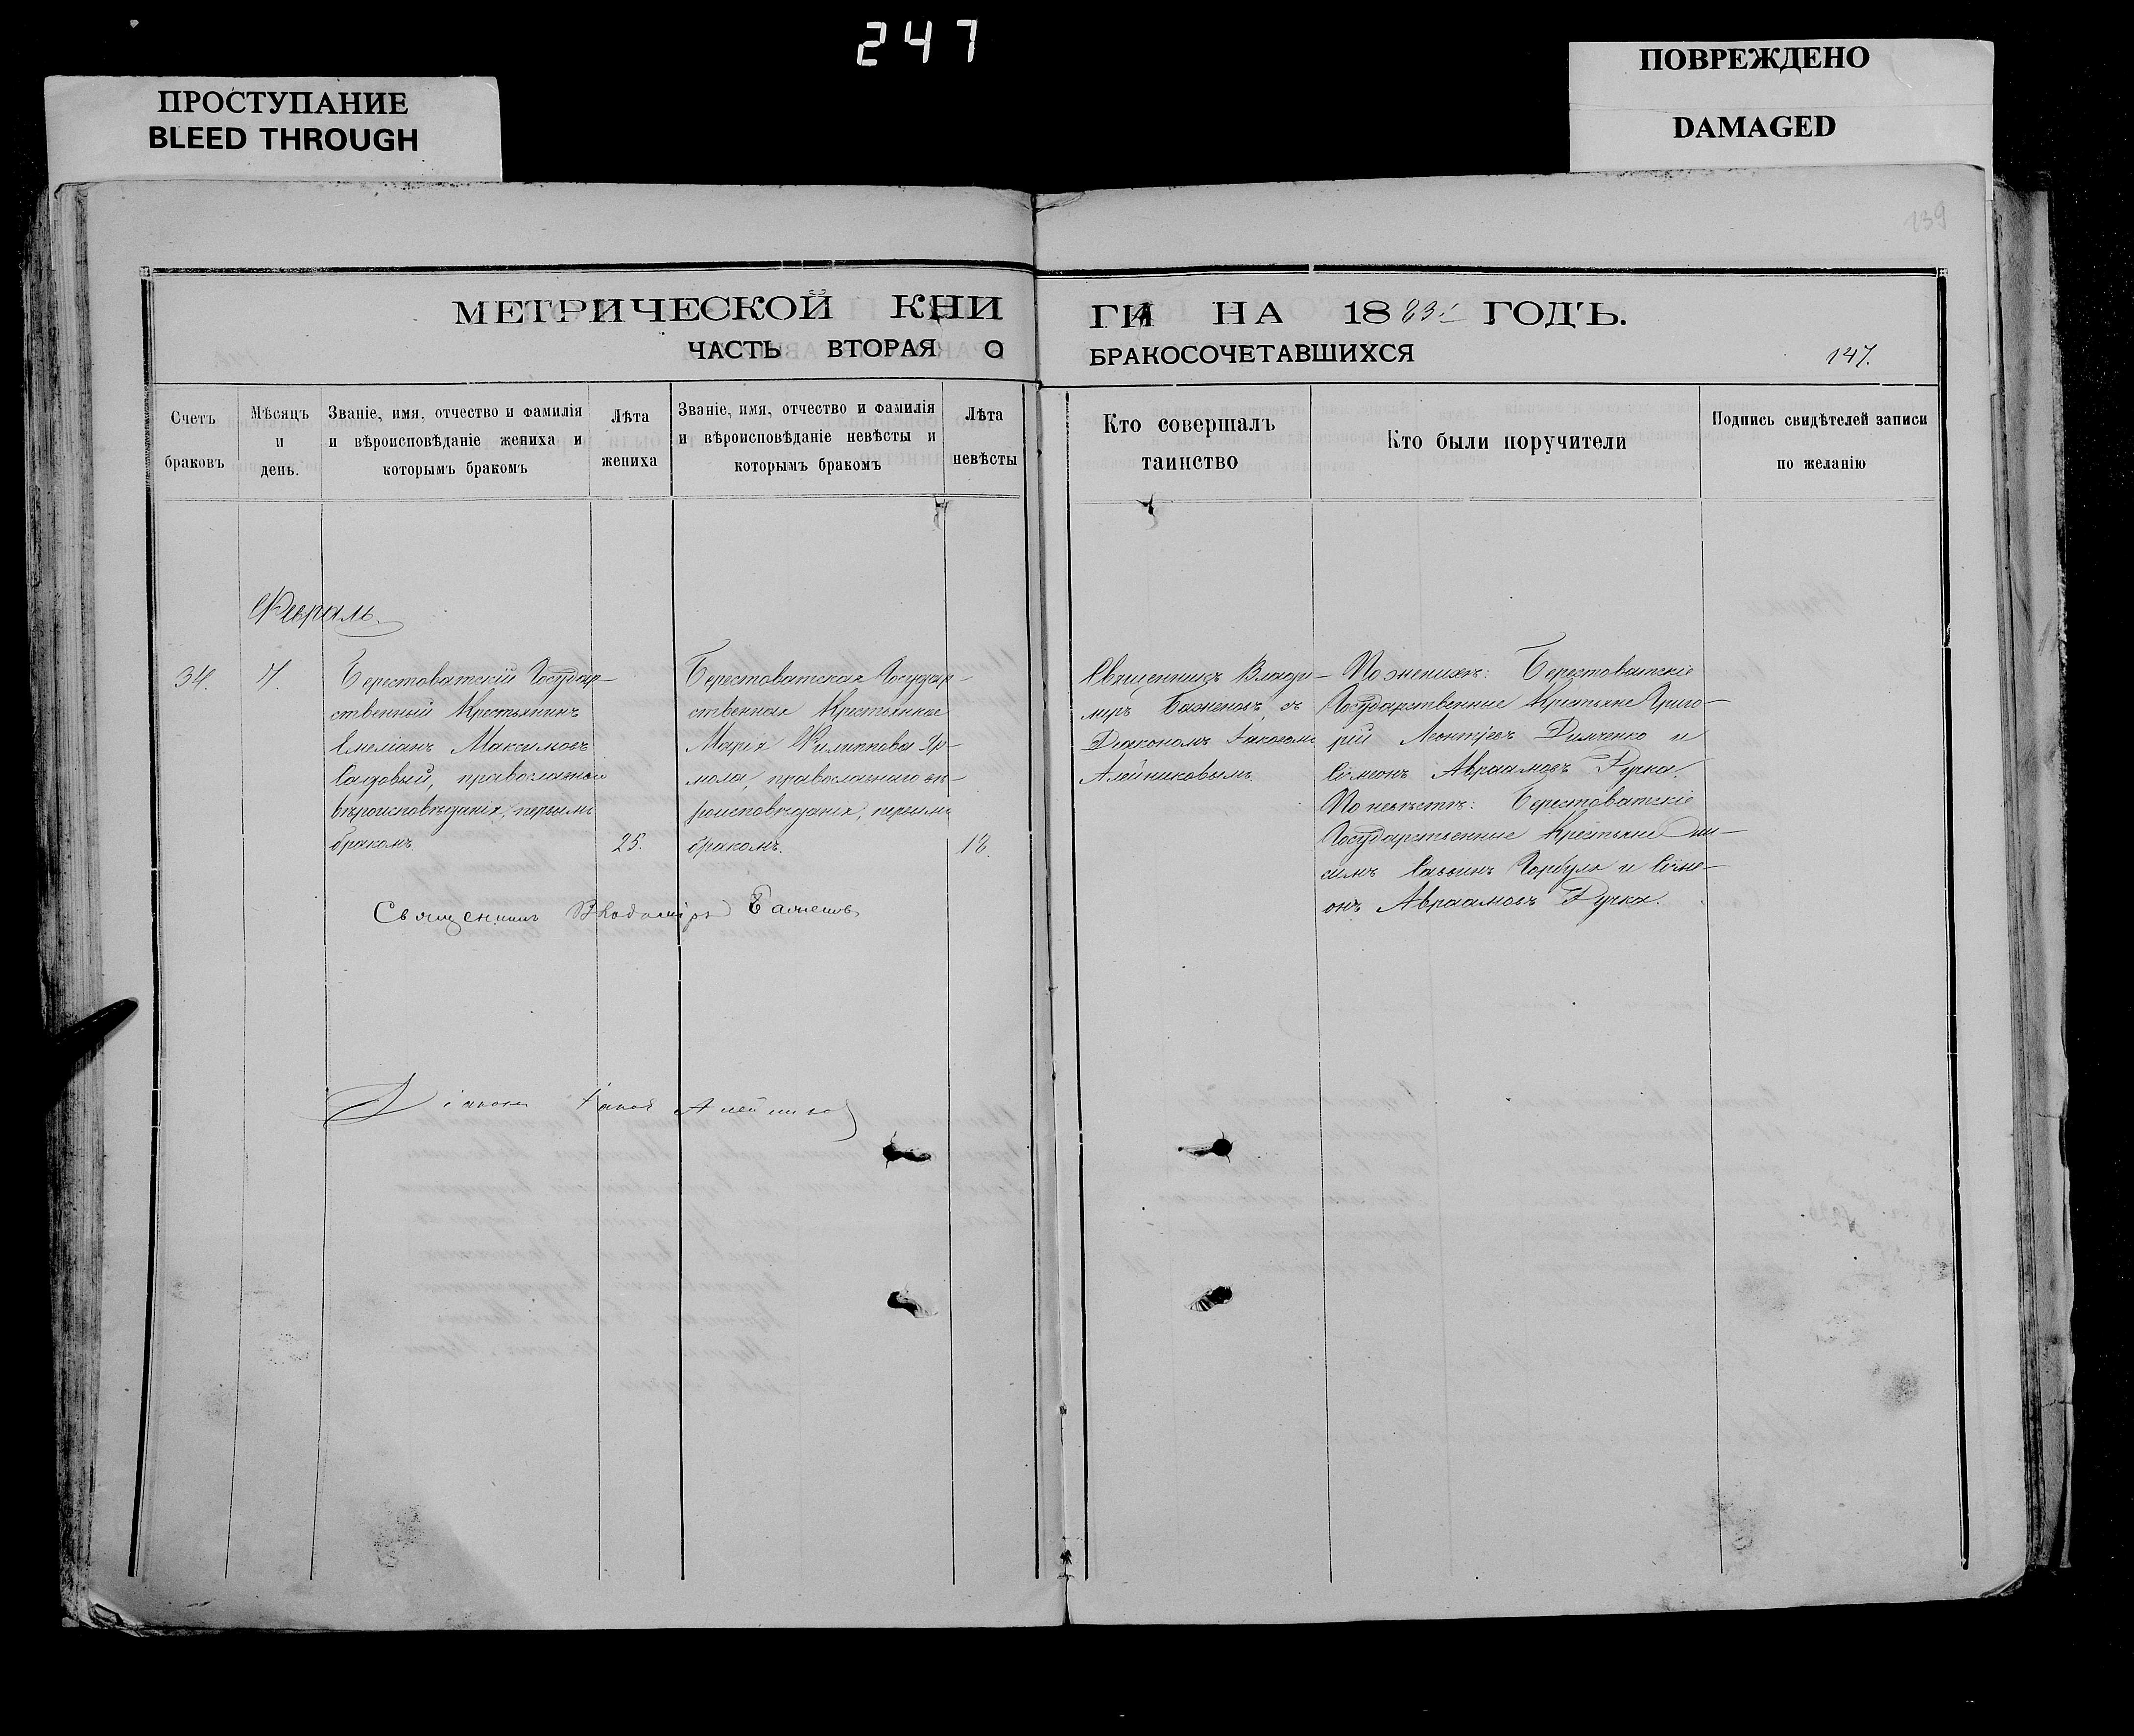 247
ПРОСТУПАНИЕ
BLEED THROUGH
ПОВРЕЖДЕНО
DAMAGED
139
МЕТРИЧЕСКОЙ КНИ
ГИ НА 1883 ГОДЪ.
ЧАСТЬ ВТОРАЯ О
БРАКОСОЧЕТАВШИХСЯ
147.
Счетъ
браковъ
Мѣсяцъ
и
день.
Званіе, имя, отчество и фамилія
и вѣроисповѣданіе жениха и
которымъ бракомъ
Лѣта
жениха
Званіе, имя, отчество и фамилія
и вѣроисповѣданіе невѣсты и
которымъ бракомъ
Лѣта
невѣсты
Кто совершалъ
таинство
Кто были поручители
Подпись свидѣтелей записи
по желанію
Февраль.
34.
7.
Берестоватскій Государ-
ственный Крестьянинъ
Емеліанъ Максимовъ
Садовый, православнаго
вѣроисповѣданія, первымъ
бракомъ
25.
Берестоватская Государ-
ственная Крестьянка
Марія Филиппова Яр-
мола, православнаго вѣ-
роисповѣданія, первымъ
бракомъ.
18.
Священникъ Влади-
миръ Баженовъ, съ
Діакономъ Іаковомъ
Алейниковымъ
По женихѣ: Берестоватскіе
Государственные Крестьяне Григо-
рій Леонтіевъ Димченко и
Сѵмеонъ Авраамовъ Ручка.
По невѣстѣ: Берестоватскіе
Государственные Крестьяне Они-
симъ Саввинъ Горбуля и Сѵме-
онъ Авраамовъ Ручка.
Священникъ Владиміръ Баженовъ
Діаконъ Іаковъ Алейниковъ